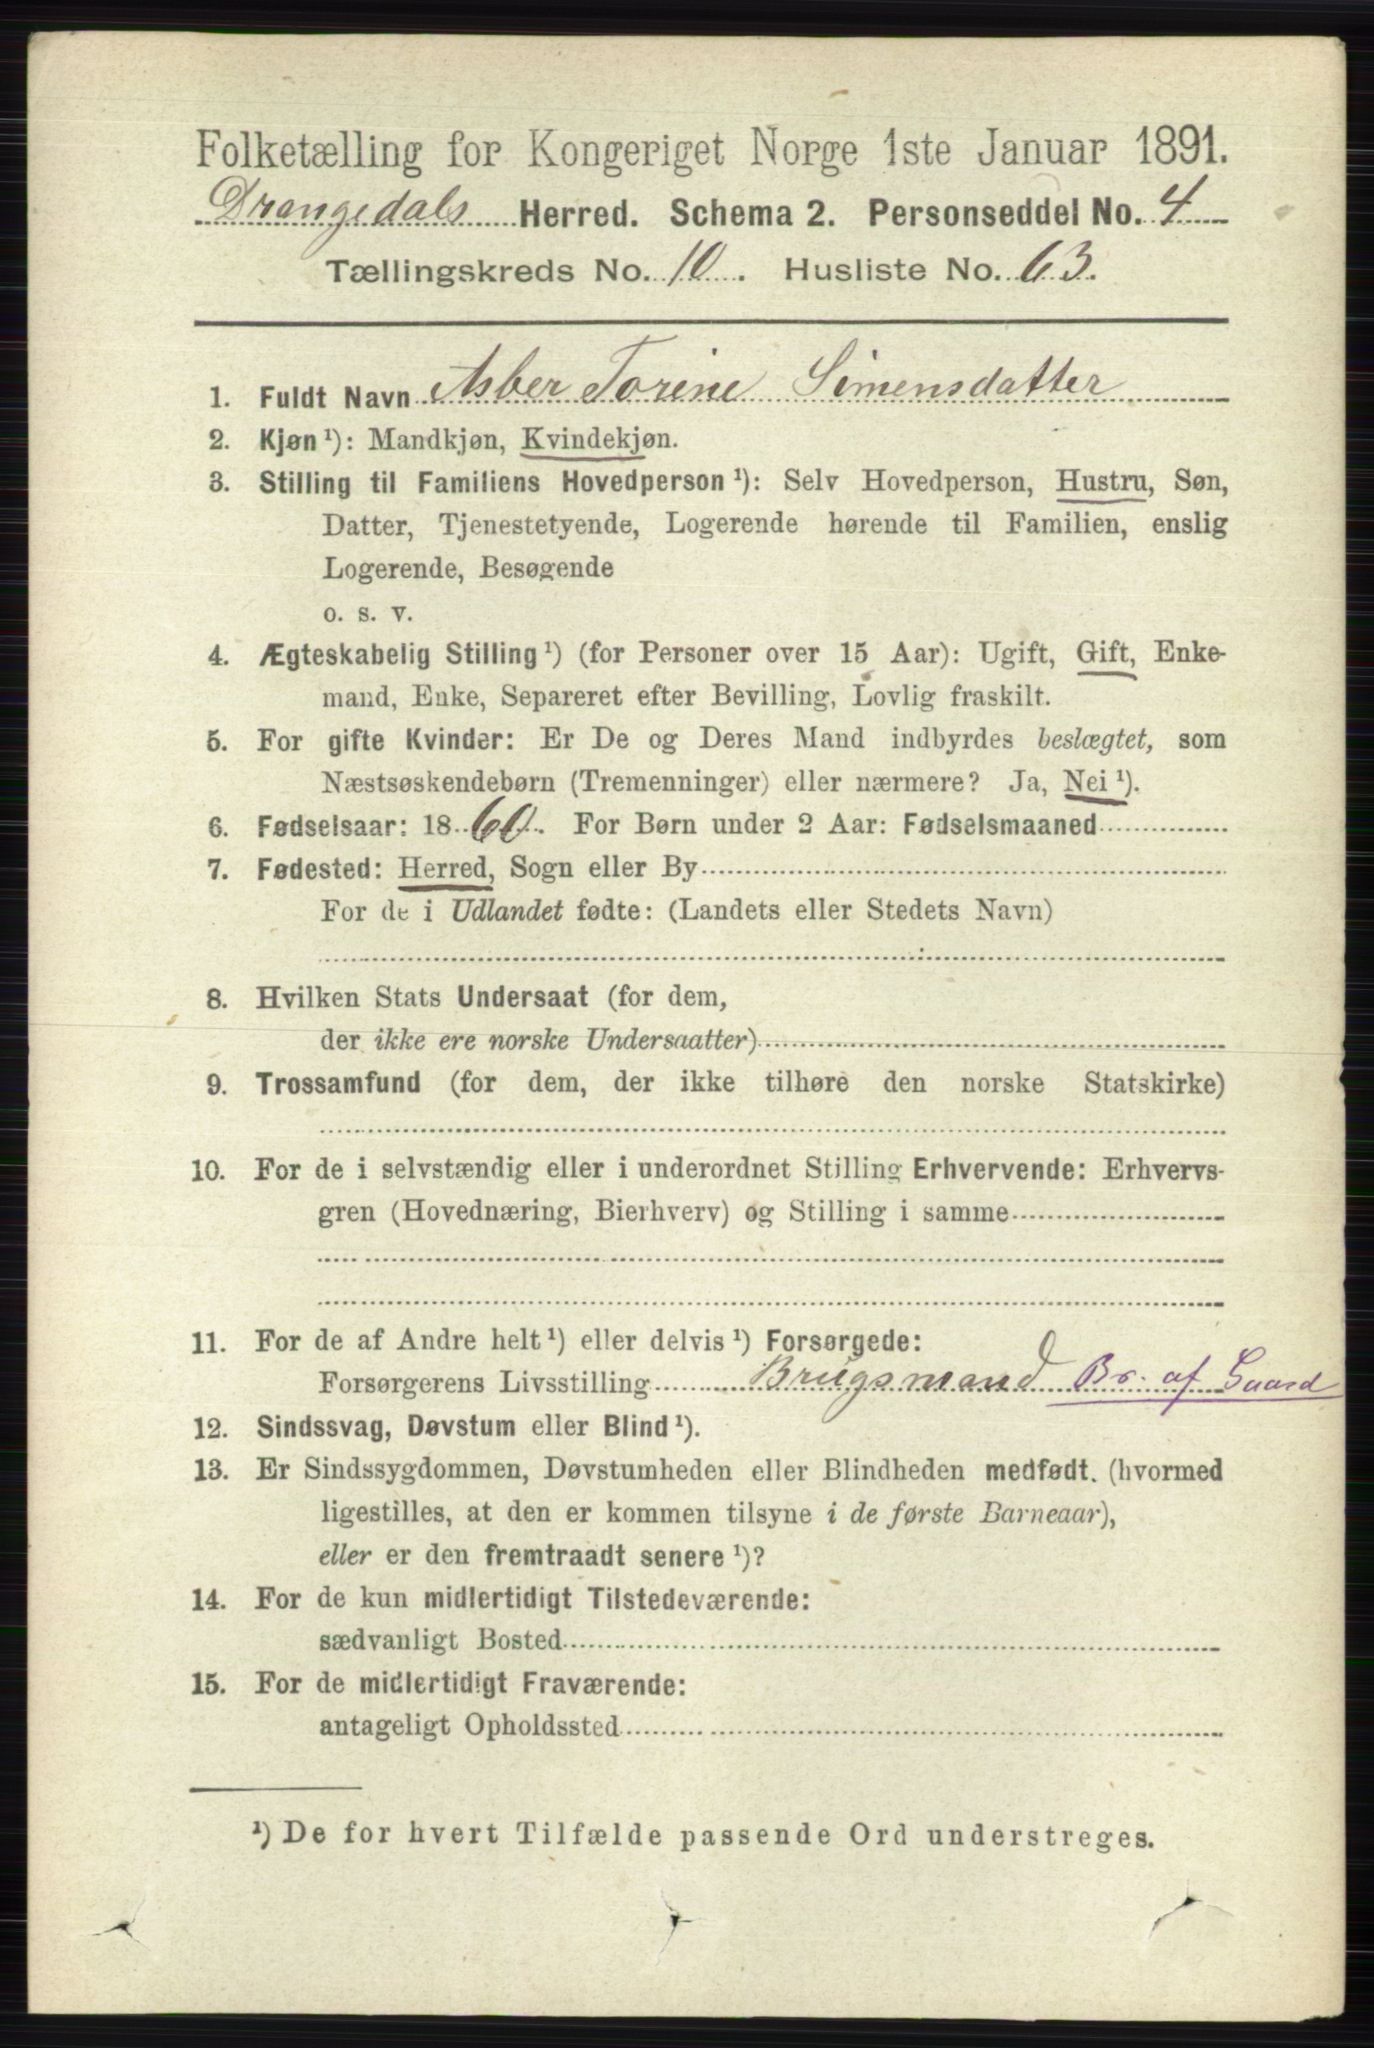 Folketælling for Kongeriget Norge 1ste Januar 1891.
Drangedals Herred. Schema 2. Personseddel No. 4
Tællingskreds No. 10. Husliste No. 63.
1. Fuldt Navn Asber Torine Simensdatter
2. Kjøn ¹): Mandkjøn, Kvindekjøn.
3. Stilling til Familiens Hovedperson ¹): Selv Hovedperson, Hustru, Søn,
Datter, Tjenestetyende, Logerende hørende til Familien, enslig
Logerende, Besøgende
o. s. v.
4. Ægteskabelig Stilling ¹) (for Personer over 15 Aar): Ugift, Gift, Enke-
mand, Enke, Separeret efter Bevilling, Lovlig fraskilt.
5. For gifte Kvinder: Er De og Deres Mand indbyrdes beslægtet, som
Næstsøskendebørn (Tremenninger) eller nærmere? Ja, Nei ¹).
6. Fødselsaar: 1860. For Børn under 2 Aar: Fødselsmaaned
7. Fødested: Herred, Sogn eller By
For de i Udlandet fødte: (Landets eller Stedets Navn)
8. Hvilken Stats Undersaat (for dem,
der ikke ere norske Undersaatter)
9. Trossamfund (for dem, der ikke tilhøre den norske Statskirke)
10. For de i selvstændig eller i underordnet Stilling Erhvervende: Erhvervs-
gren (Hovednæring, Bierhverv) og Stilling i samme
11. For de af Andre helt ¹) eller delvis ¹) Forsørgede:
Forsørgerens Livsstilling Brugsmand Br. af Gaard
12. Sindssvag, Døvstum eller Blind ¹).
13. Er Sindssygdommen, Døvstumheden eller Blindheden medfødt. (hvormed
ligestilles, at den er kommen tilsyne i de første Barneaar),
eller er den fremtraadt senere ¹)?
14. For de kun midlertidigt Tilstedeværende:
sædvanligt Bosted
15. For de midlertidigt Fraværende:
antageligt Opholdssted
¹) De for hvert Tilfælde passende Ord understreges.